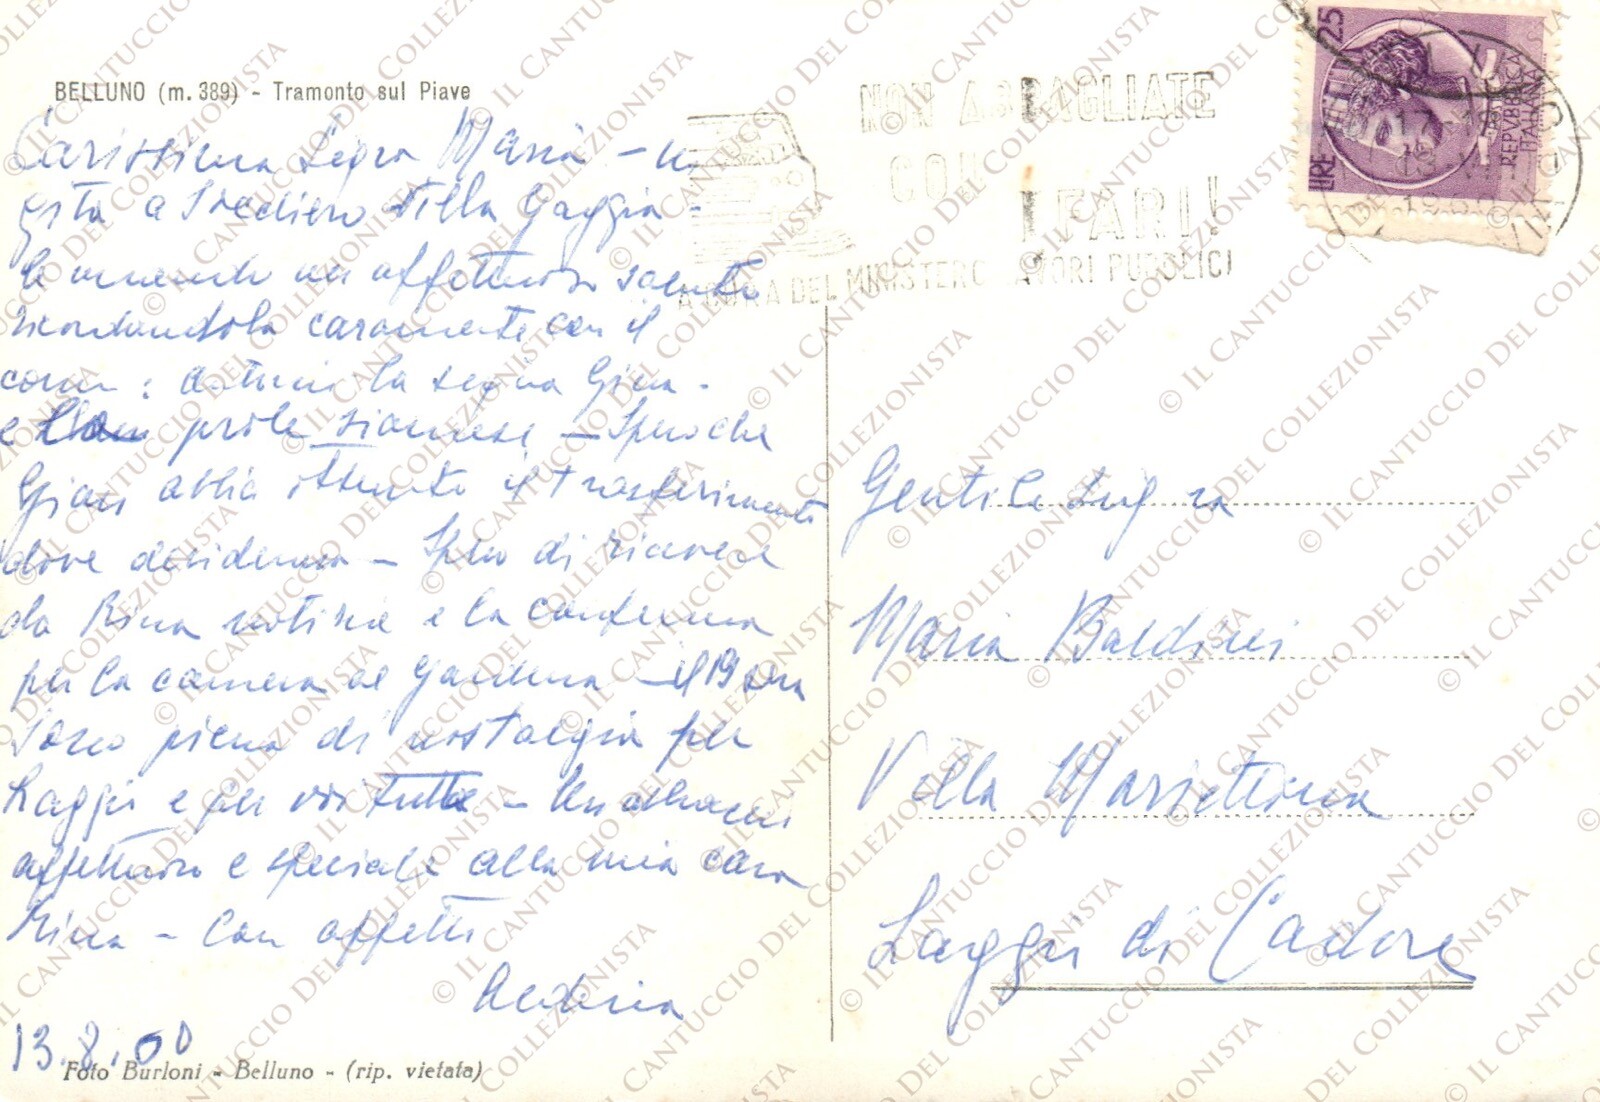 BELLUNO (m. 389) - Tramonto sul Piave
Carissima Sig.ra Maria - in
gita a Villa Gaggia -
le invio un affettuoso saluto
ricordandola caramente con il
la Gina -
e prole siamese - Spero che
Gian abbia ottenuto il trasferimento
dove desiderava - Spero di ricevere
da Rina notizie e la conferma
per la camera - il 19 sera
Sono piena di nostalgia per
Laggio e per voi tutte - Un abbraccio
affettuoso e speciale alla mia cara
Rina - Con affetto
13.8.60
Foto Burloni - Belluno - (rip. vietata)
NON ABBAGLIATE
CON I FARI!
A CURA DEL MINISTERO LAVORI PUBBLICI
LIRE 25
REPVBBLICA
ITALIANA
Gentile Sig.ra
Maria Baldissei
Villa Mariettina
Laggio di Cadore
© IL CANTUCCIO DEL COLLEZIONISTA